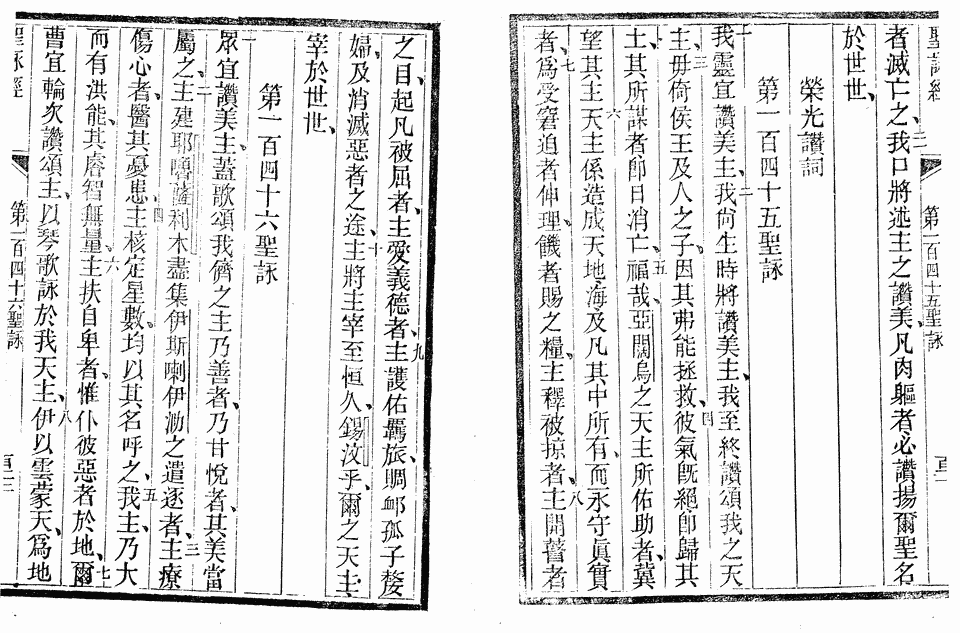 聖詠經
第一百四十五聖詠
者滅亡之、二一我口將述主之讚美、凡肉軀者必讚揚爾聖名
於世世、
榮光讚詞
第一百四十五聖詠
一我靈宜讚美主、二我尚生時將讚美主、我至終讚頌我之天
主、三毋倚侯王及人之子、因其弗能拯救、四彼氣旣絕卽歸其
土、其所謀者卽日消亡、五福哉、亞闊烏之天主所佑助者、冀
望其主天主、六係造成天地海及凡其中所有、而永守眞實
者、七爲受窘迫者伸理、饑者賜之糧、主釋被掠者、八主開瞽者
之目、起凡被屈者、主愛義德者、九主護佑羈旅、賙卹孤子嫠
婦、及消滅惡者之途、十主將主宰至恒久、錫汶乎、爾之天主
宰於世世、
第一百四十六聖詠
一眾宜讚美主、蓋歌頌我儕之主乃善者、乃甘悅者、其美當
屬之、二主建耶嚕薩利木、盡集伊斯喇伊泐之遣逐者、三主療
傷心者、醫其憂患、四主核定星數、均以其名呼之、五我主乃大
而有洪能、其睿智無量、六主扶自卑者、惟仆彼惡者於地、七爾
曹宜輪次讚頌主、以琴歌詠於我天主、八伊以雲蒙天、爲地
聖詠經
第一百四十六聖詠